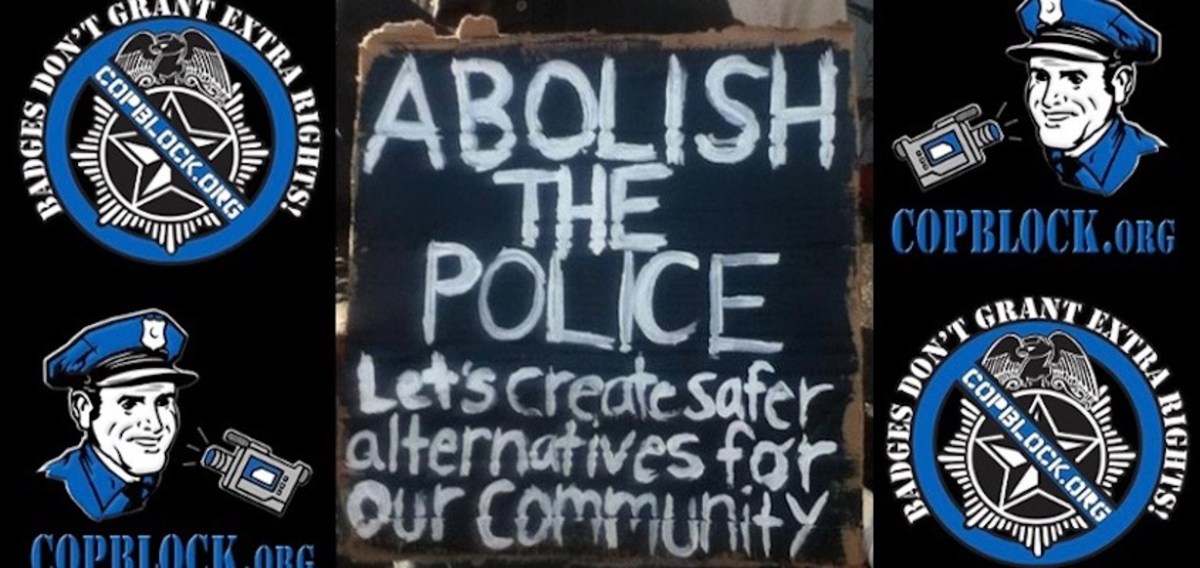 BADGES DON'T GRANT EXTRA RIGHTS!
COPBLOCK.ORG
COPBLOCK.ORG
ABOLISH
THE
POLICE
Let's create safer
alternatives for
our community
COPBLOCK.ORG
BADGES DON'T GRANT EXTRA RIGHTS!
COPBLOCK.ORG